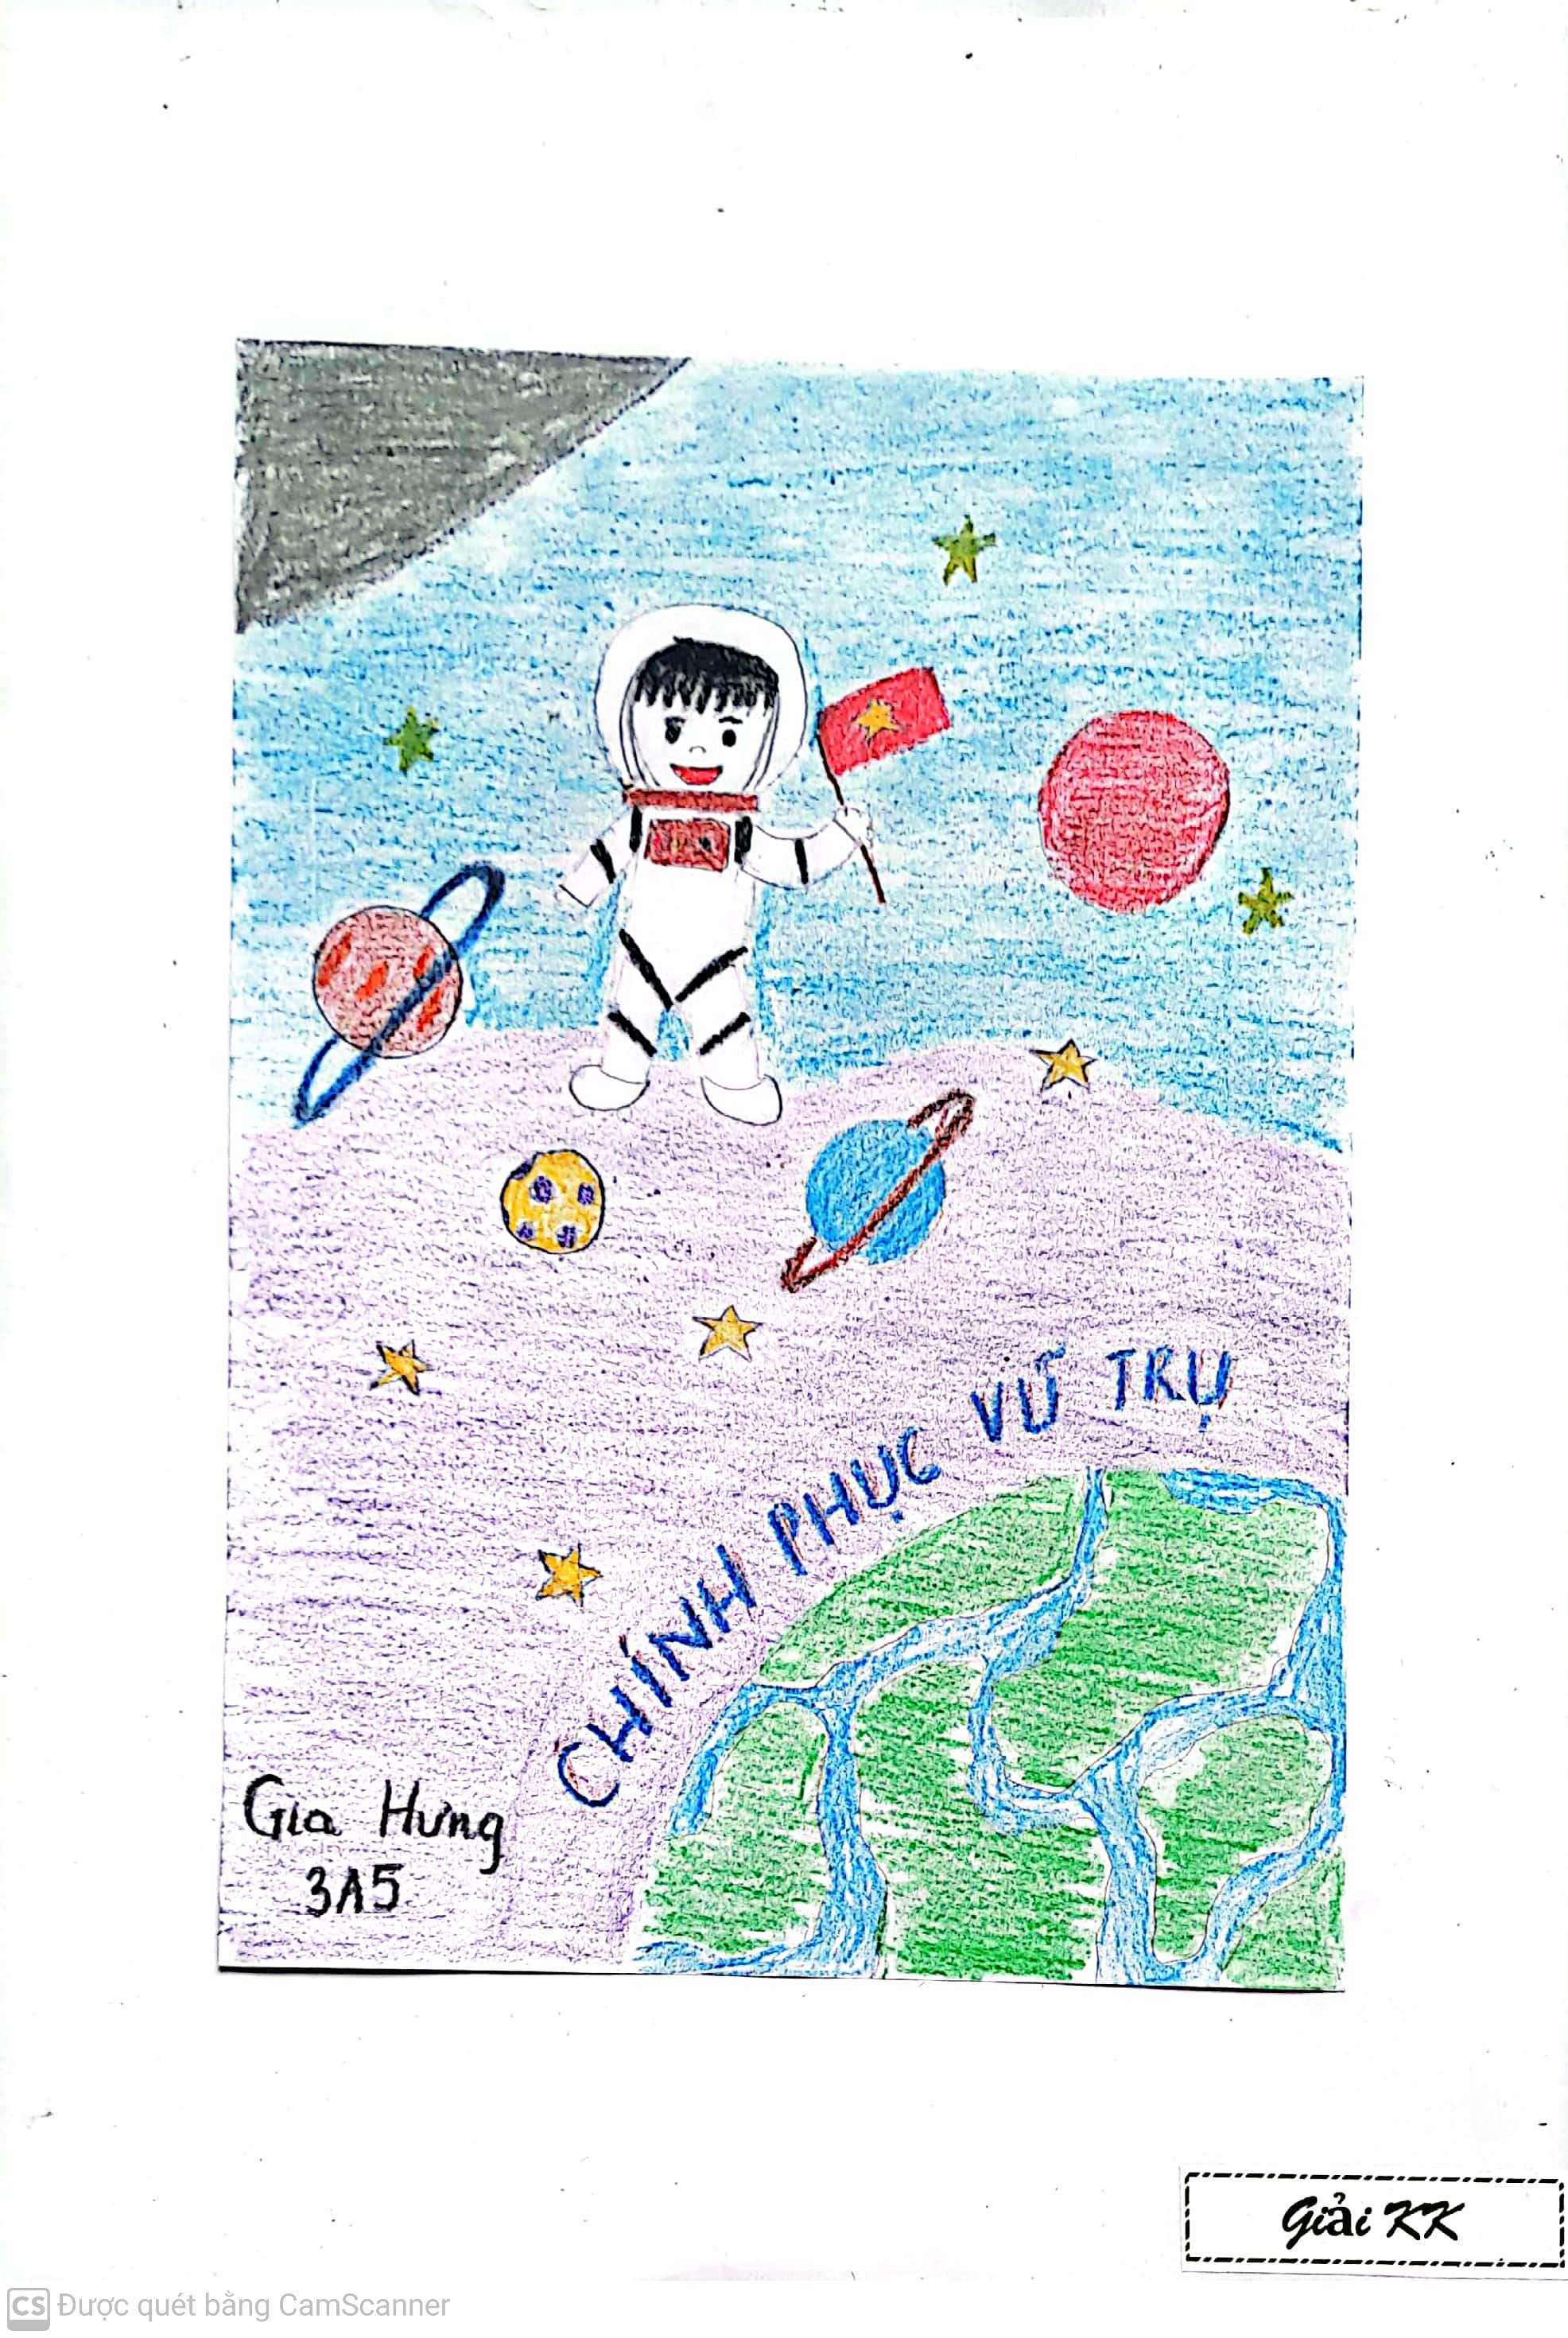 CHÍNH PHỤC VŨ TRỤ
Gia Hưng
3A5
Giải KK
CS Được quét bằng CamScanner